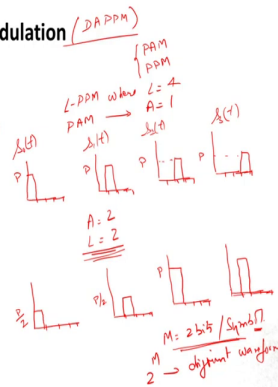 dulation (DAPPM)
{ PAM
PPM
L-PPM where L=4
PAM → A=1
S₀(t) S₁(t) S₂(t) S₃(t)
P P P P
A=2
L=2
P/2 P/2 P
M = 2 bit / Symbol
2^M → different waveform